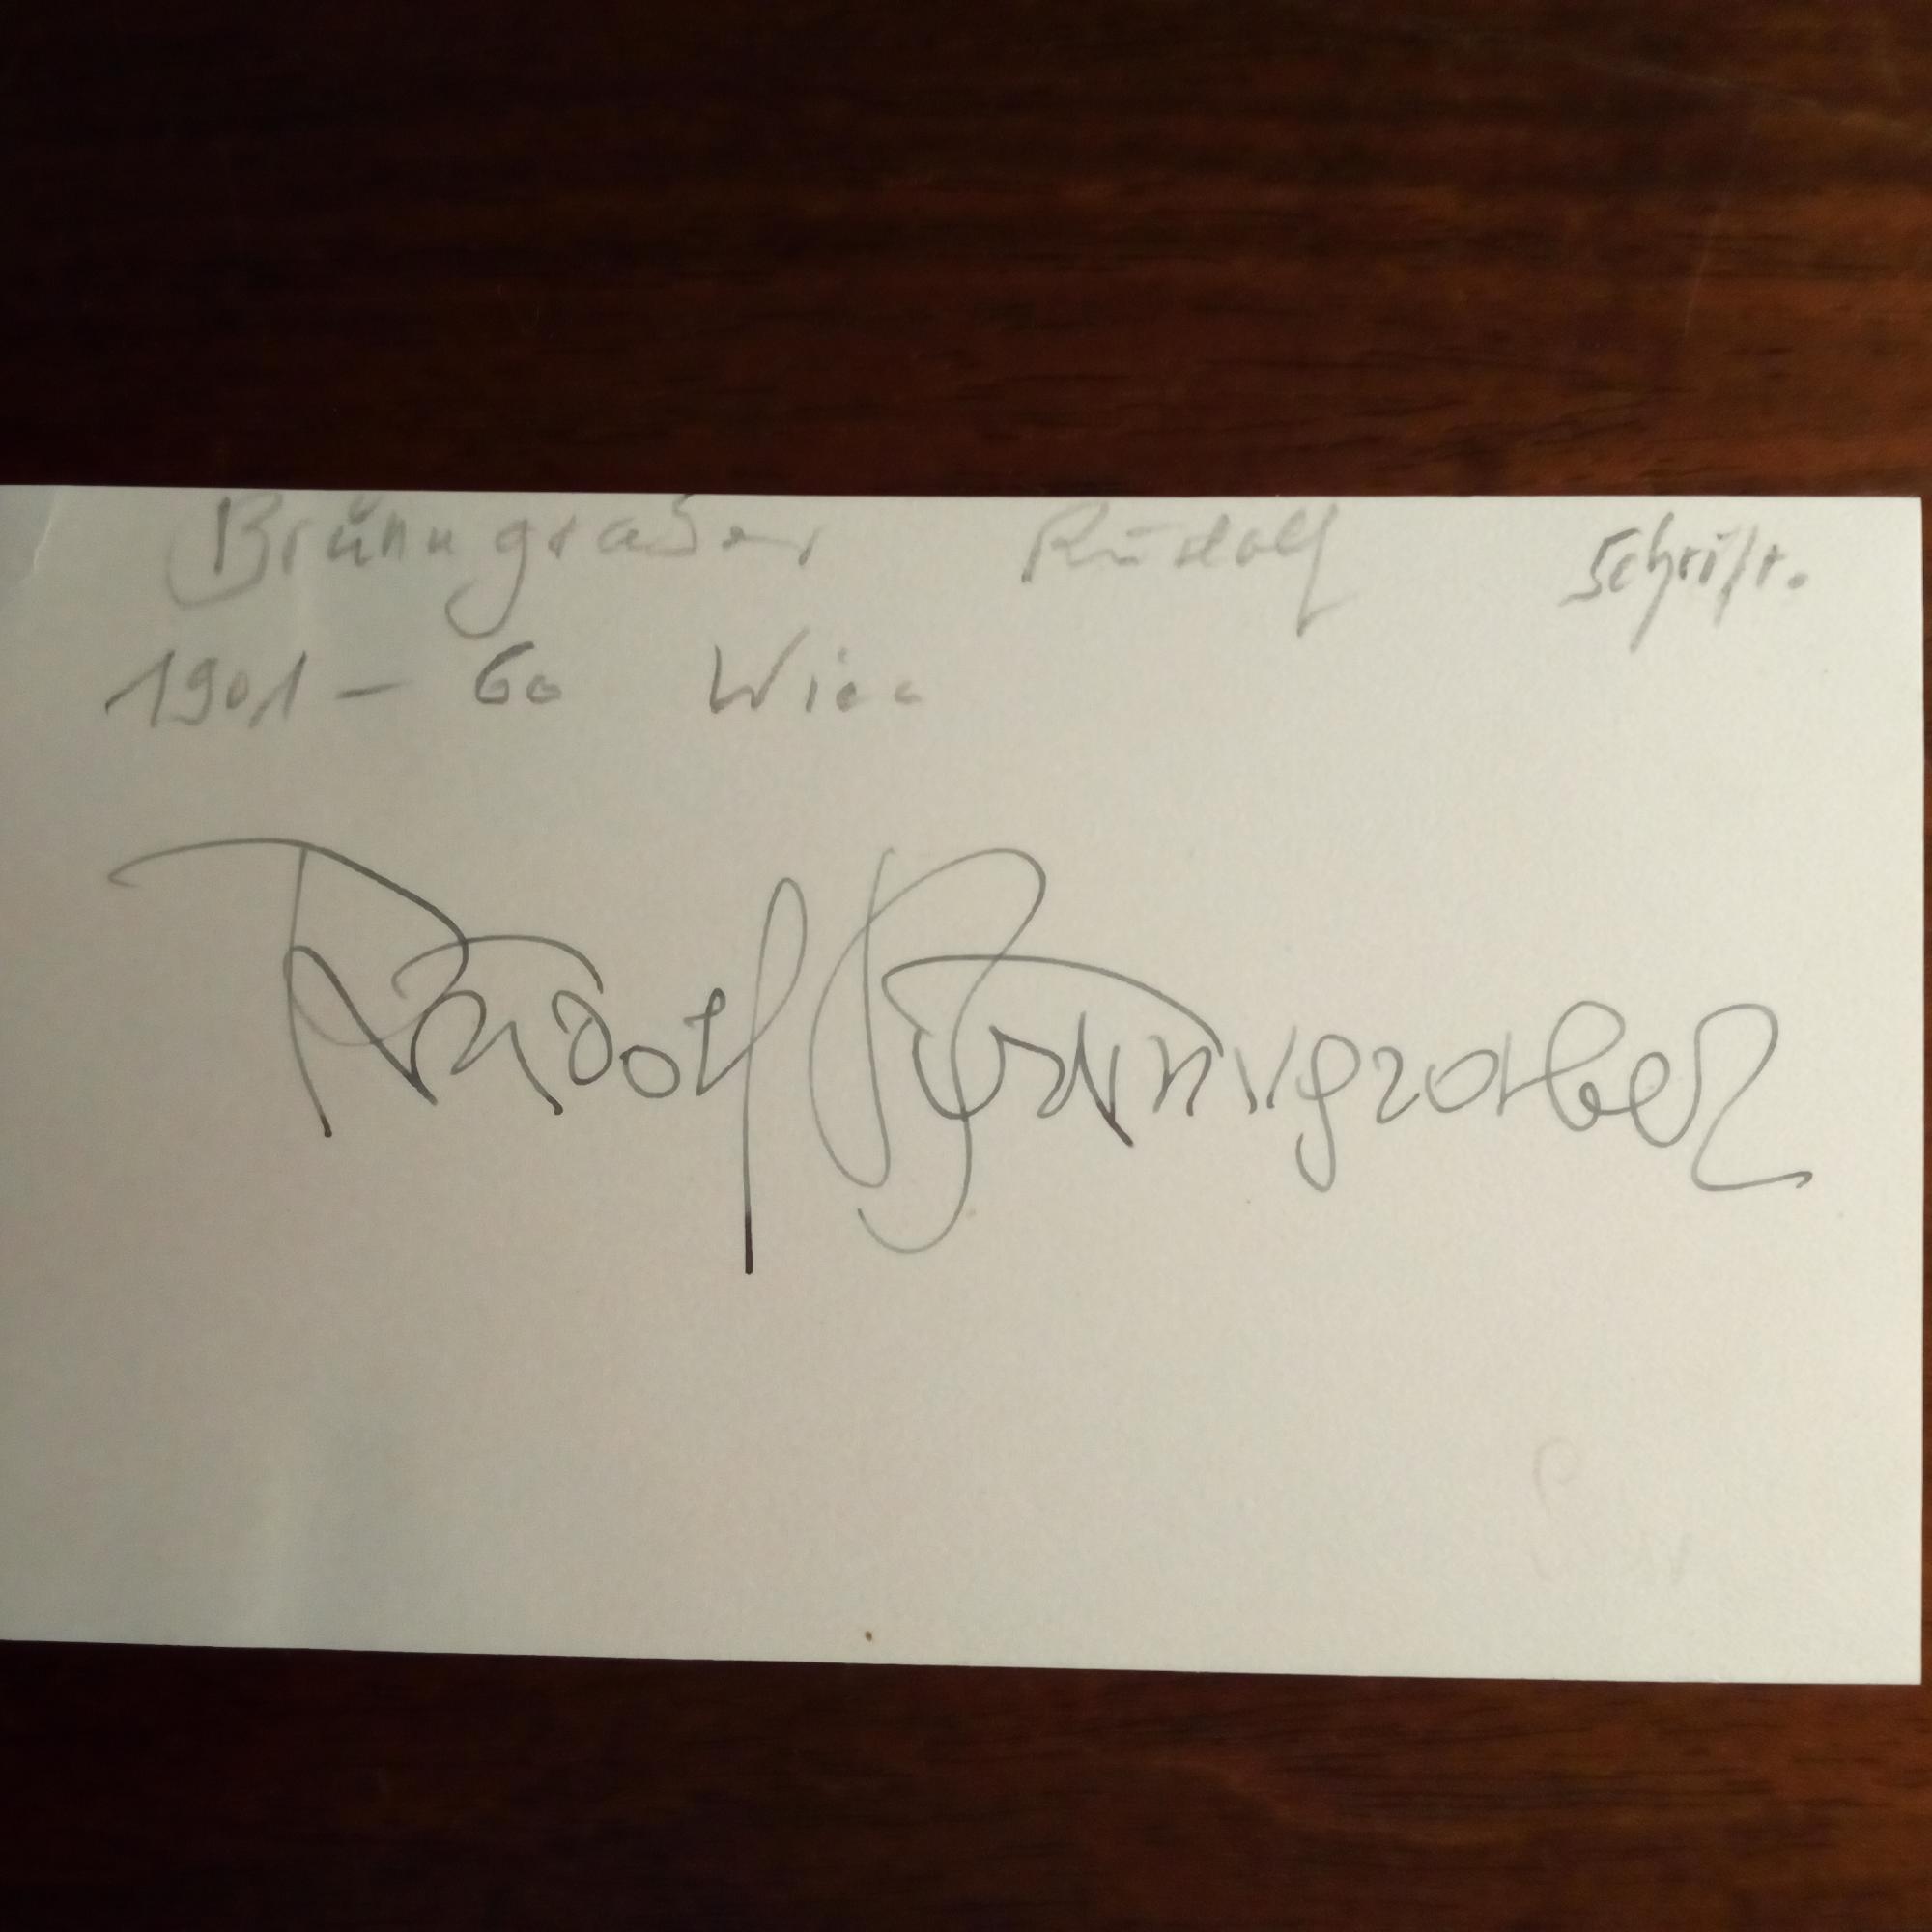 Brunngraber Rudolf Schrift.
1901 - 60 Wien
Rudolf Brunngraber